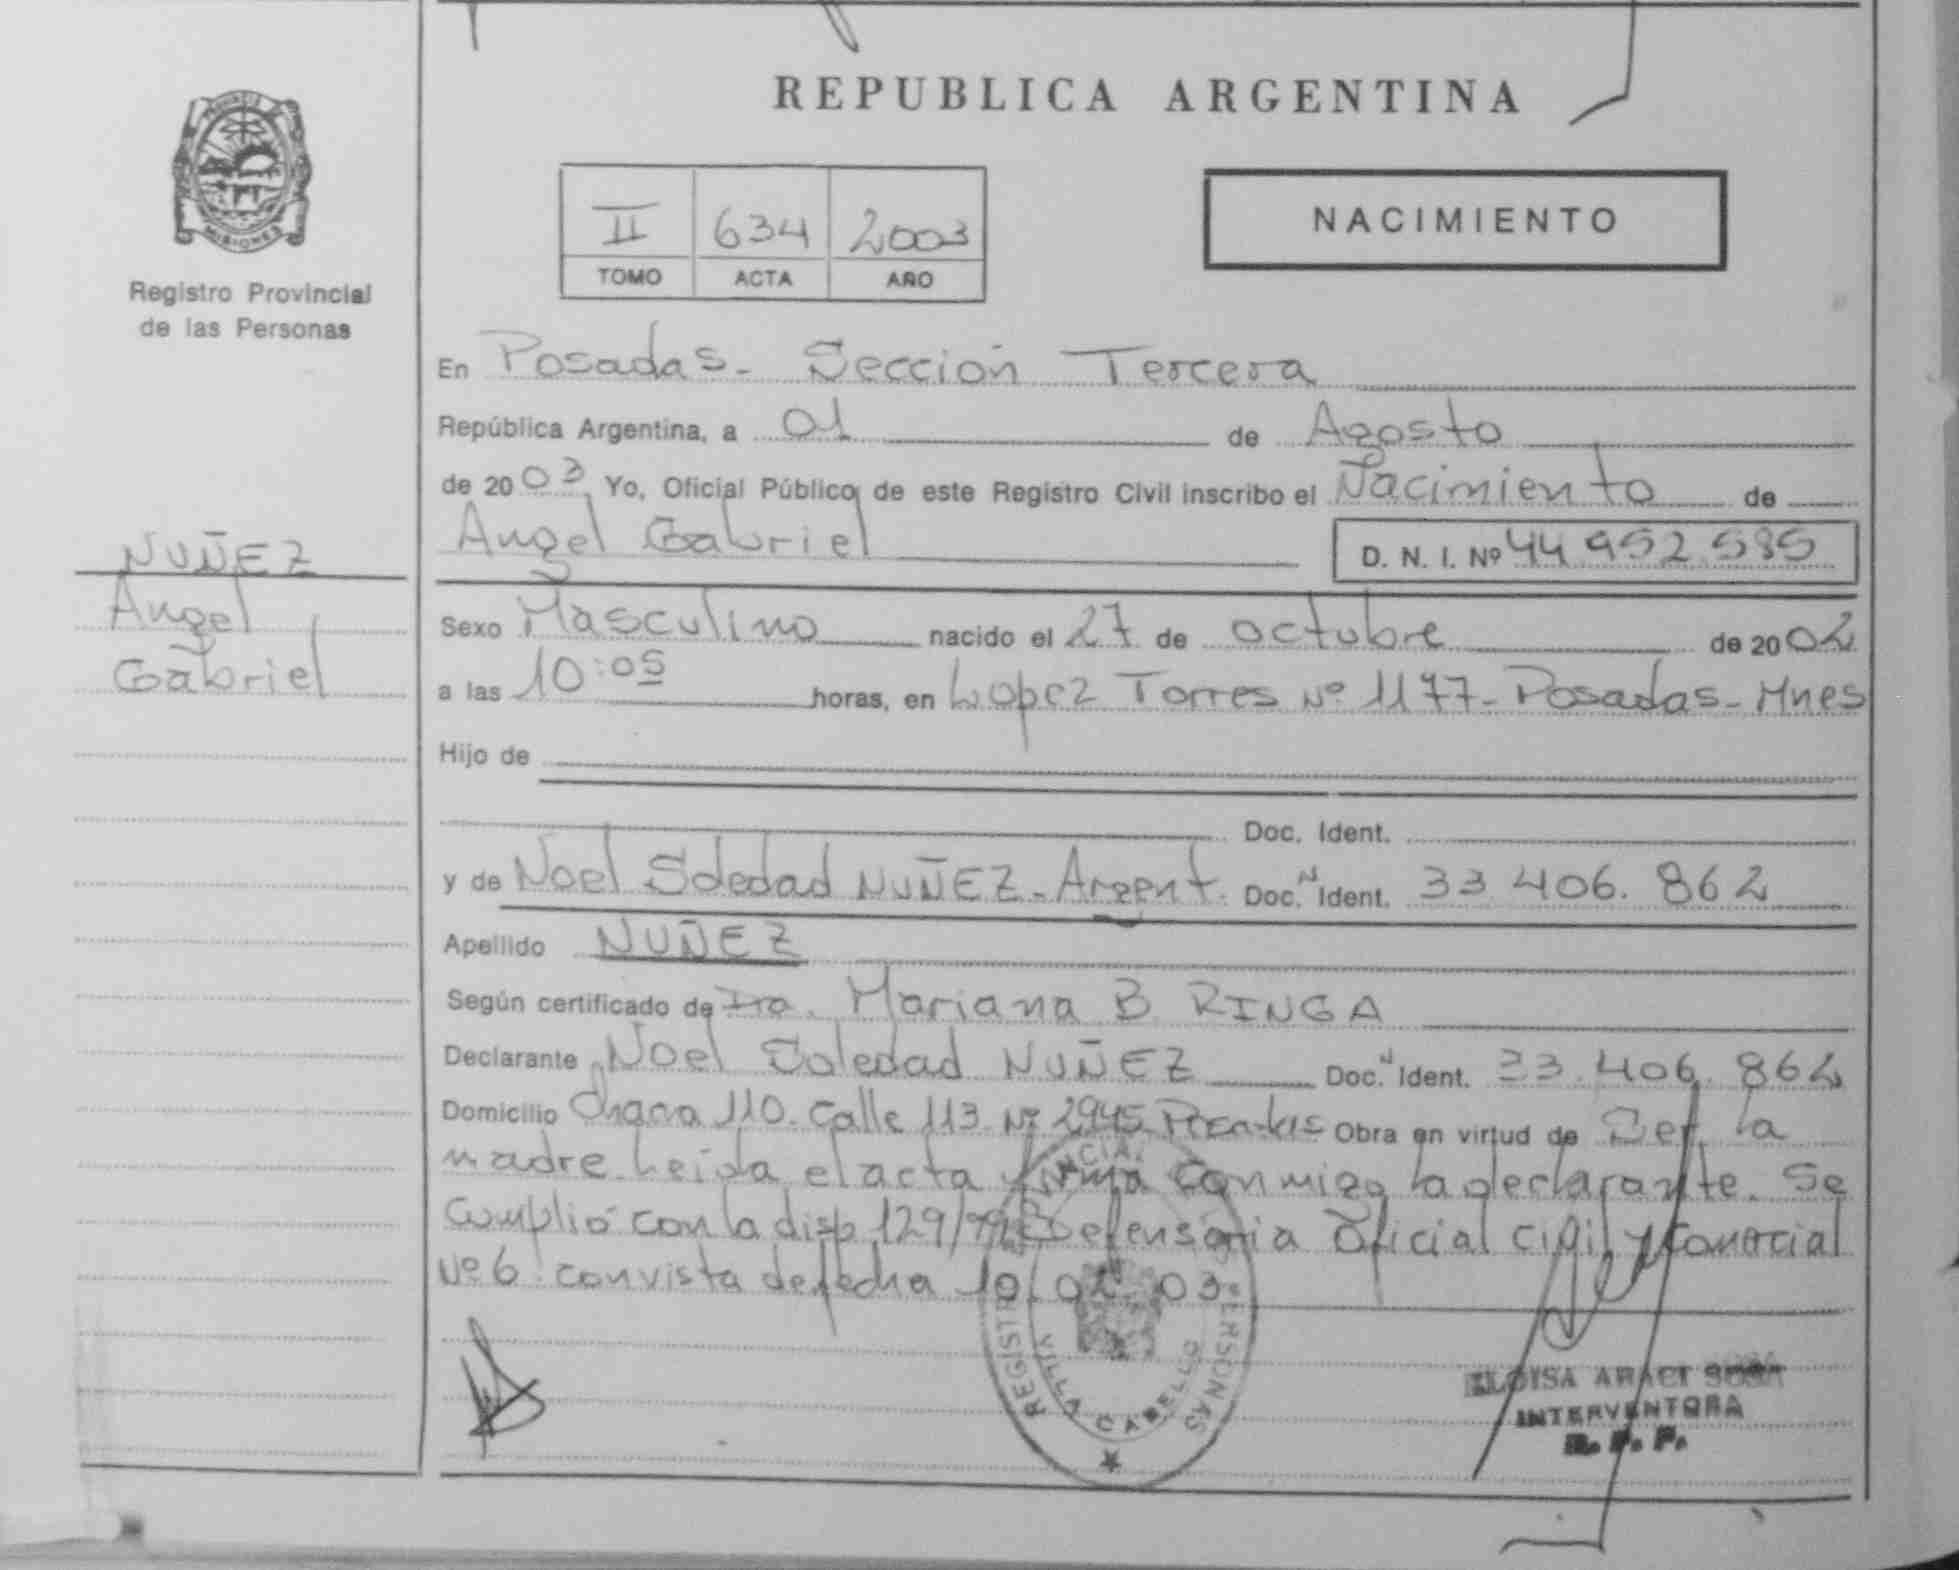 REPUBLICA ARGENTINA
MISIONES
Registro Provincial
de las Personas
II 634 2003
TOMO ACTA AÑO
NACIMIENTO
En Posadas - Sección Tercera
República Argentina, a 01 de Agosto
de 2003 Yo, Oficial Público de este Registro Civil inscribo el Nacimiento de
Angel Gabriel D. N. I. Nº 44 952 585
NUÑEZ
Angel
Gabriel
Sexo Masculino nacido el 27 de octubre de 2002
a las 10:05 horas, en Lopez Torres Nº 1177 - Posadas - Mnes
Hijo de
Doc. Ident.
y de Noel Soledad NUÑEZ - Argent. Doc. N Ident. 33 406. 862
Apellido NUÑEZ
Según certificado de Dra. Mariana B RINGA
Declarante Noel Soledad NUÑEZ Doc. N Ident. 33. 406. 862
Domicilio Chacra 110. Calle 113 Nº 2945 Obra en virtud de Ser la
madre. Leída el acta firma conmigo la declarante. Se
Cumplió con la disp 129/ Defensoria Oficial Civil y Comercial
Nº 6 con vista de fecha 10 03
REGISTRO PERSONAS
VILLA CABELLO
ELOISA ARACI SOSA
INTERVENTORA
R. P. P.